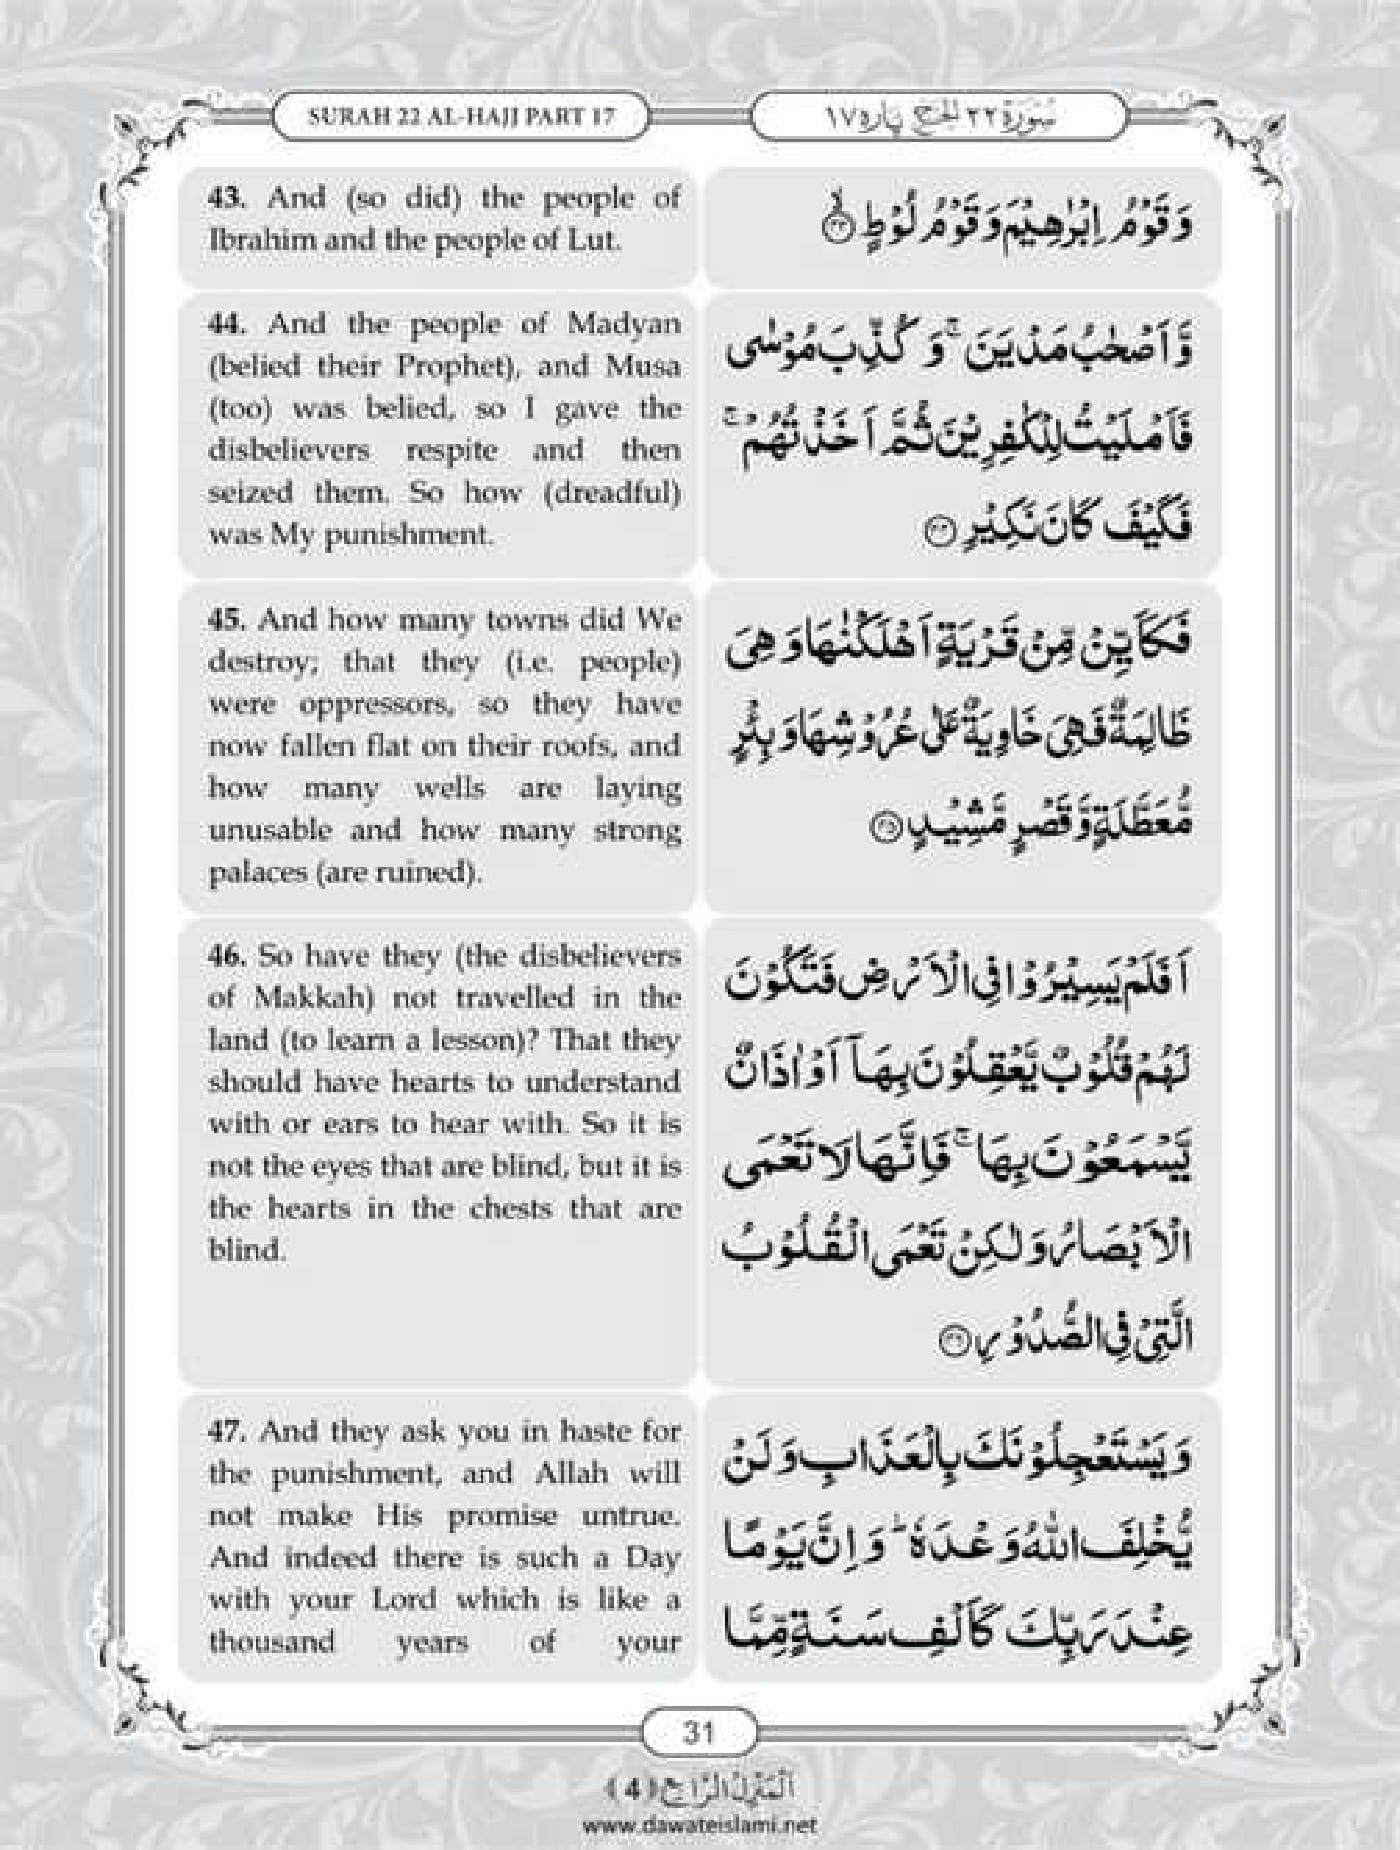 SURAH 22 AL-HAJJ PART 17
سُوْرَةُ ٢٢ الحج پارہ ١٧
43. And (so did) the people of
Ibrahim and the people of Lut.
وَ قَوْمُ اِبْرٰهِیْمَ وَ قَوْمُ لُوْطٍۙ(۴۳)
44. And the people of Madyan
(belied their Prophet), and Musa
(too) was belied, so I gave the
disbelievers respite and then
seized them. So how (dreadful)
was My punishment.
وَّ اَصْحٰبُ مَدْیَنَۚ-وَ كُذِّبَ مُوْسٰى
فَاَمْلَیْتُ لِلْكٰفِرِیْنَ ثُمَّ اَخَذْتُهُمْۚ-
فَكَیْفَ كَانَ نَكِیْرِ(۴۴)
45. And how many towns did We
destroy; that they (i.e. people)
were oppressors, so they have
now fallen flat on their roofs, and
how many wells are laying
unusable and how many strong
palaces (are ruined).
فَكَاَیِّنْ مِّنْ قَرْیَةٍ اَهْلَكْنٰهَا وَ هِیَ
ظَالِمَةٌ فَهِیَ خَاوِیَةٌ عَلٰى عُرُوْشِهَا وَ بِئْرٍ
مُّعَطَّلَةٍ وَّ قَصْرٍ مَّشِیْدٍ(۴۵)
46. So have they (the disbelievers
of Makkah) not travelled in the
land (to learn a lesson)? That they
should have hearts to understand
with or ears to hear with. So it is
not the eyes that are blind, but it is
the hearts in the chests that are
blind.
اَفَلَمْ یَسِیْرُوْا فِی الْاَرْضِ فَتَكُوْنَ
لَهُمْ قُلُوْبٌ یَّعْقِلُوْنَ بِهَاۤ اَوْ اٰذَانٌ
یَّسْمَعُوْنَ بِهَاۚ-فَاِنَّهَا لَا تَعْمَى
الْاَبْصَارُ وَ لٰكِنْ تَعْمَى الْقُلُوْبُ
الَّتِیْ فِی الصُّدُوْرِ(۴۶)
47. And they ask you in haste for
the punishment, and Allah will
not make His promise untrue.
And indeed there is such a Day
with your Lord which is like a
thousand years of your
وَ یَسْتَعْجِلُوْنَكَ بِالْعَذَابِ وَ لَنْ
یُّخْلِفَ اللّٰهُ وَعْدَهٗؕ-وَ اِنَّ یَوْمًا
عِنْدَ رَبِّكَ كَاَلْفِ سَنَةٍ مِّمَّا
31
اَلْمَنْزِلُ الرَّابِع (4)
www.dawateislami.net